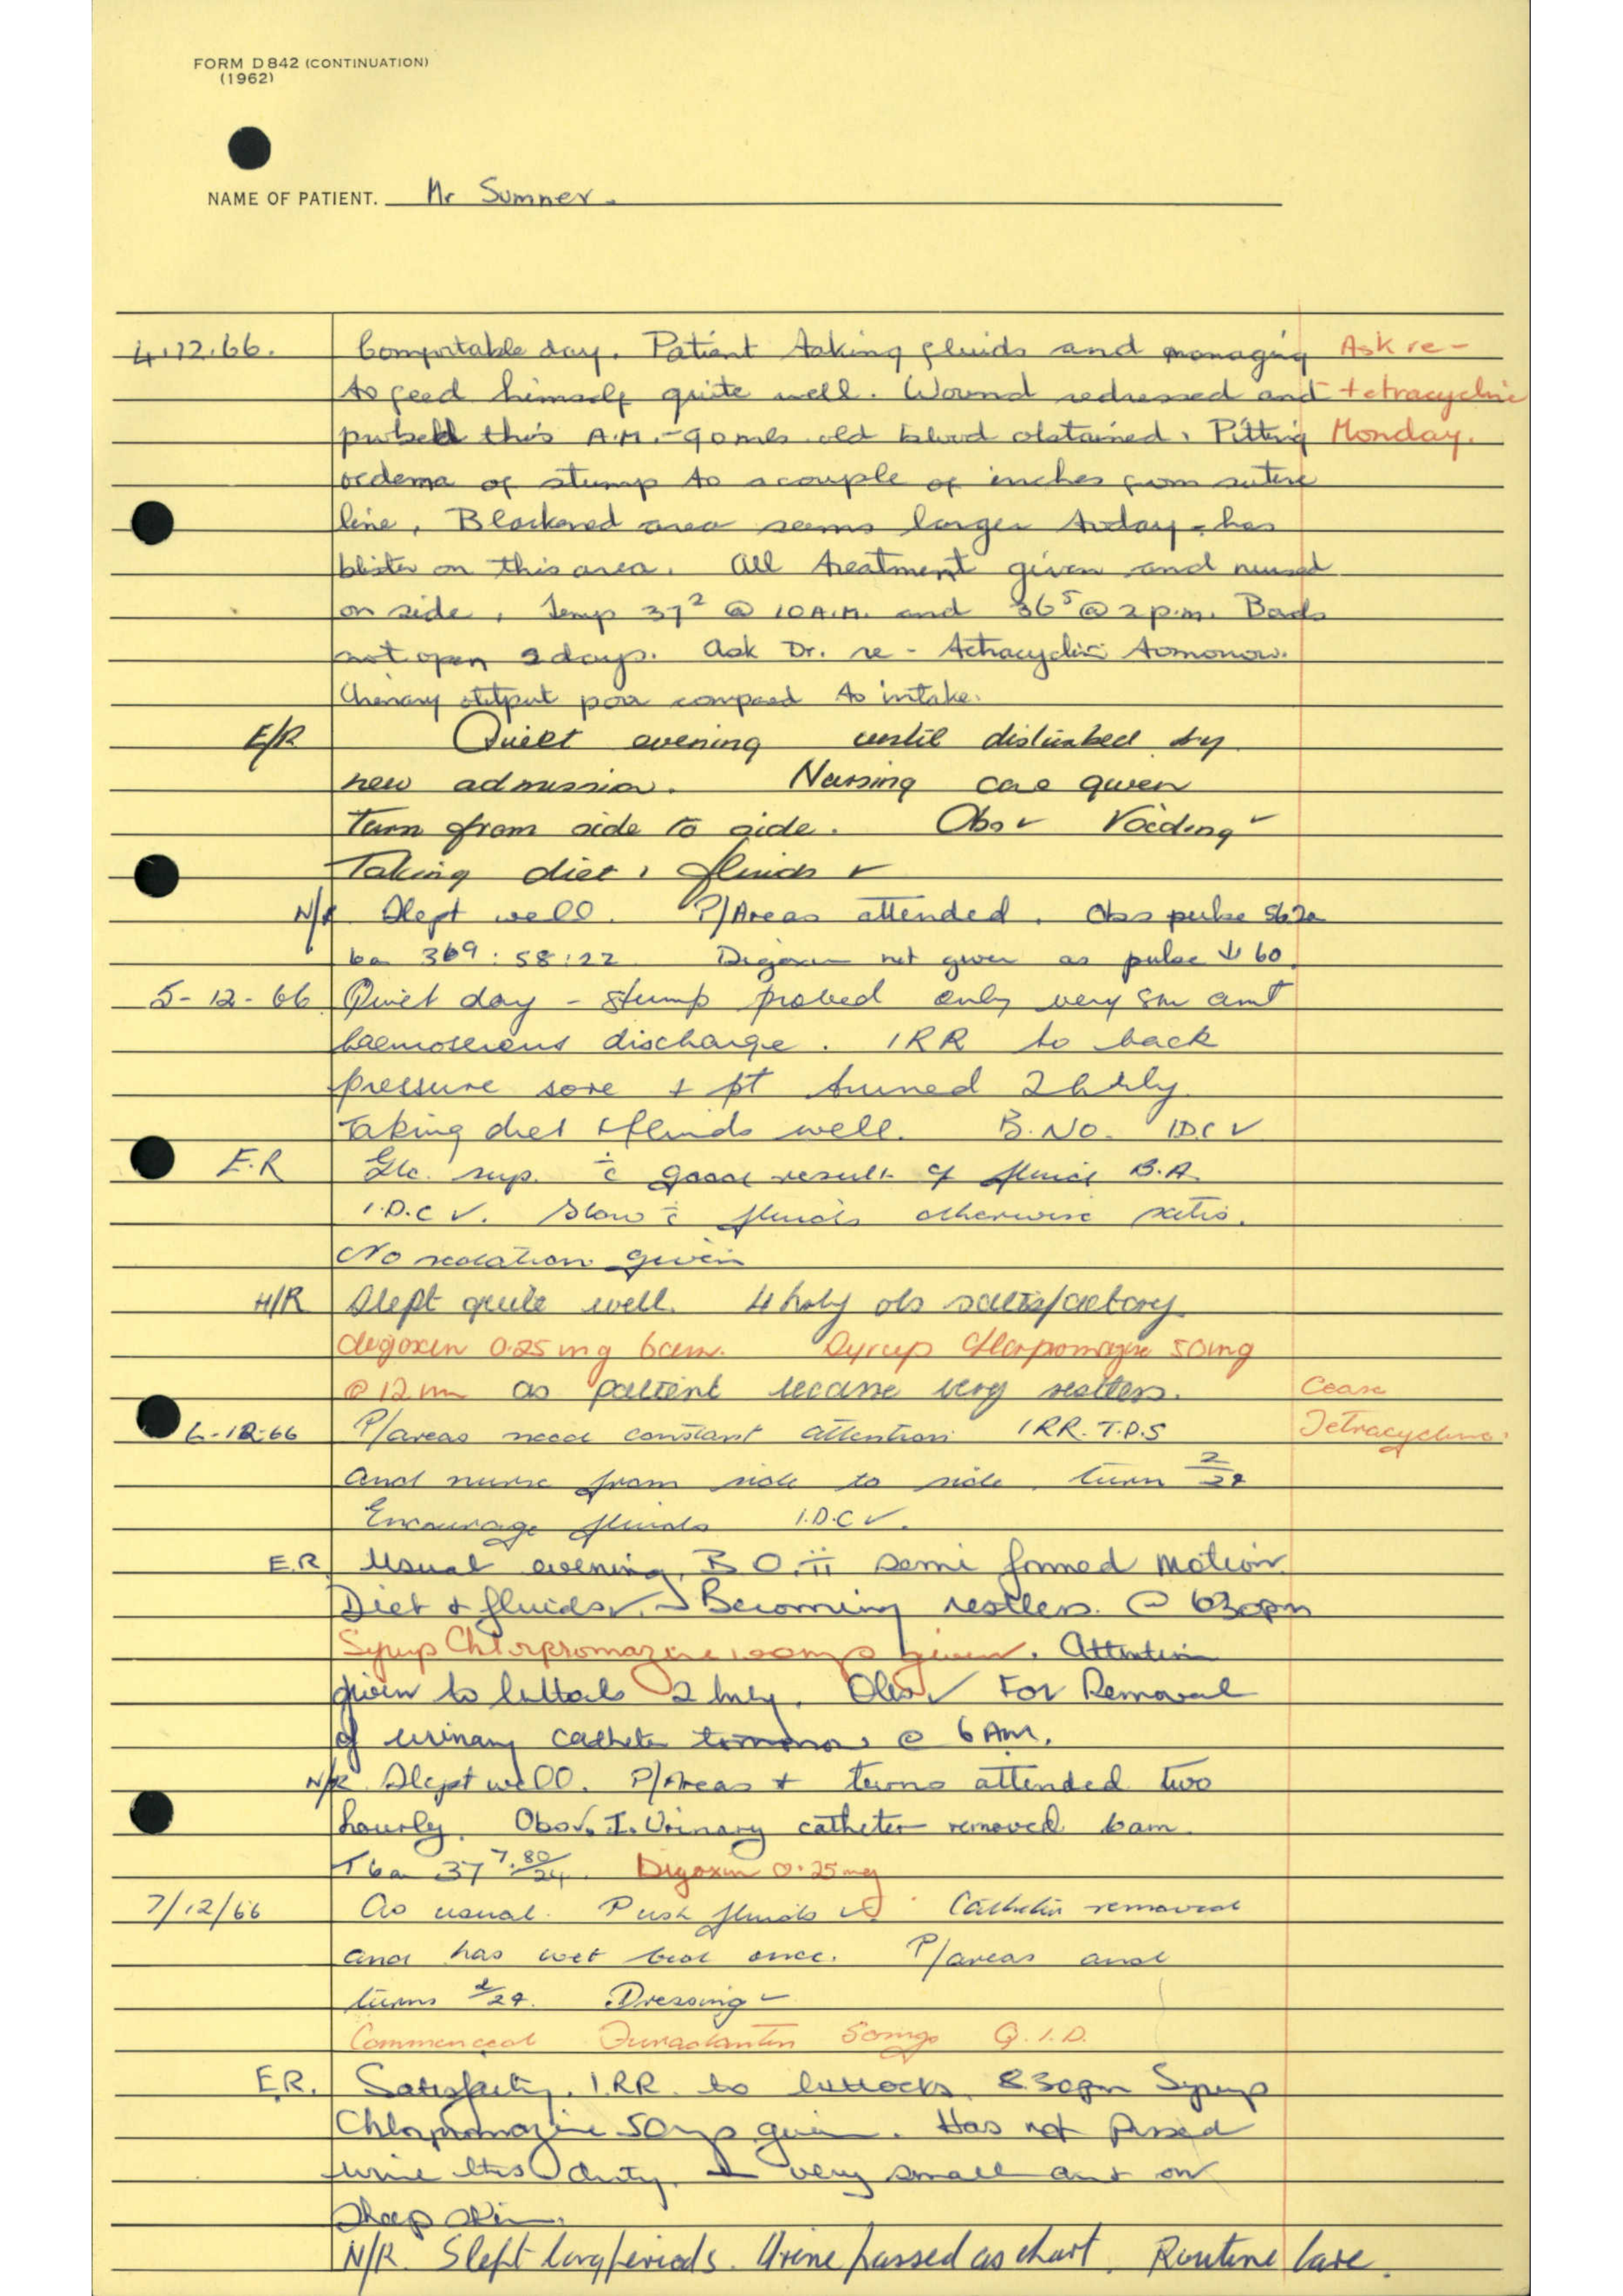 FORM D842 (CONTINUATION)
(1962)
NAME OF PATIENT. Mr Sumner.
4.12.66. Comfortable day. Patient taking fluids and managing Ask re-
to feed himself quite well. Wound redressed and tetracycline
probed this A.M. - 90 mls old blood obtained. Pitting Monday.
oedema of stump to a couple of inches from suture
line. Blackened area seems larger today - has
blister on this area. All treatment given and nursed
on side. Temp 37² @ 10 A.M. and 36⁵ @ 2 p.m. Bowels
not open 2 days. Ask Dr. re - tetracycline tomorrow.
Urinary output poor compared to intake.
E/R Quiet evening until disturbed by
new admission. Nursing care given
Turn from side to side. Obs ✓ Voiding ✓
Taking diet, fluids ✓
N/R Slept well. P/Areas attended. Obs pulse
6a 36⁹ : 58 : 22 Digoxin not given as pulse ↓ 60.
5-12-66 Quiet day - stump probed only very sm amt
haemoserous discharge. IRR to back
pressure sore + pt turned 2 hrly
Taking diet + fluids well. B.NO. IDC ✓
E.R Glc. sup. c̄ good result of fluid B.A.
I.D.C ✓. Slow c̄ fluids otherwise satis.
No sedation given
N/R Slept quite well. 4 hrly obs satisfactory
digoxin 0.25 mg 6am. Syrup Chlorpromazine 50mg
@ 12 mn as patient became very restless. Cease
6-12-66 P/areas need constant attention IRR. T.D.S Tetracycline.
and nurse from side to side turn 2/24
Encourage fluids I.D.C ✓.
E.R. Usual evening. B.O. ii semi formed motion.
Diet + fluids ✓. Becoming restless @ 630pm
Syrup Chlorpromazine 100mgs given. Attention
given to buttocks 2 hrly. Obs ✓ For Removal
of urinary catheter tomorrow @ 6 AM.
N/R Slept well. P/Areas + turns attended two
hourly. Obs ✓. Urinary catheter removed 6am.
T 6a 37⁷ : 80/24. Digoxin 0.25mg
7/12/66 As usual. Push fluids ✓. Catheter removed
and has wet bed once. P/areas and
turns 2/24. Dressing ✓
Commenced Furadantin 50mgs Q.I.D.
E.R. Satisfactory. I.RR. to buttocks. 830pm Syrup
Chlorpromazine 50mgs given. Has not passed
urine this duty. very small amt on
sheep skin.
N/R. Slept long periods. Urine passed as chart. Routine care.